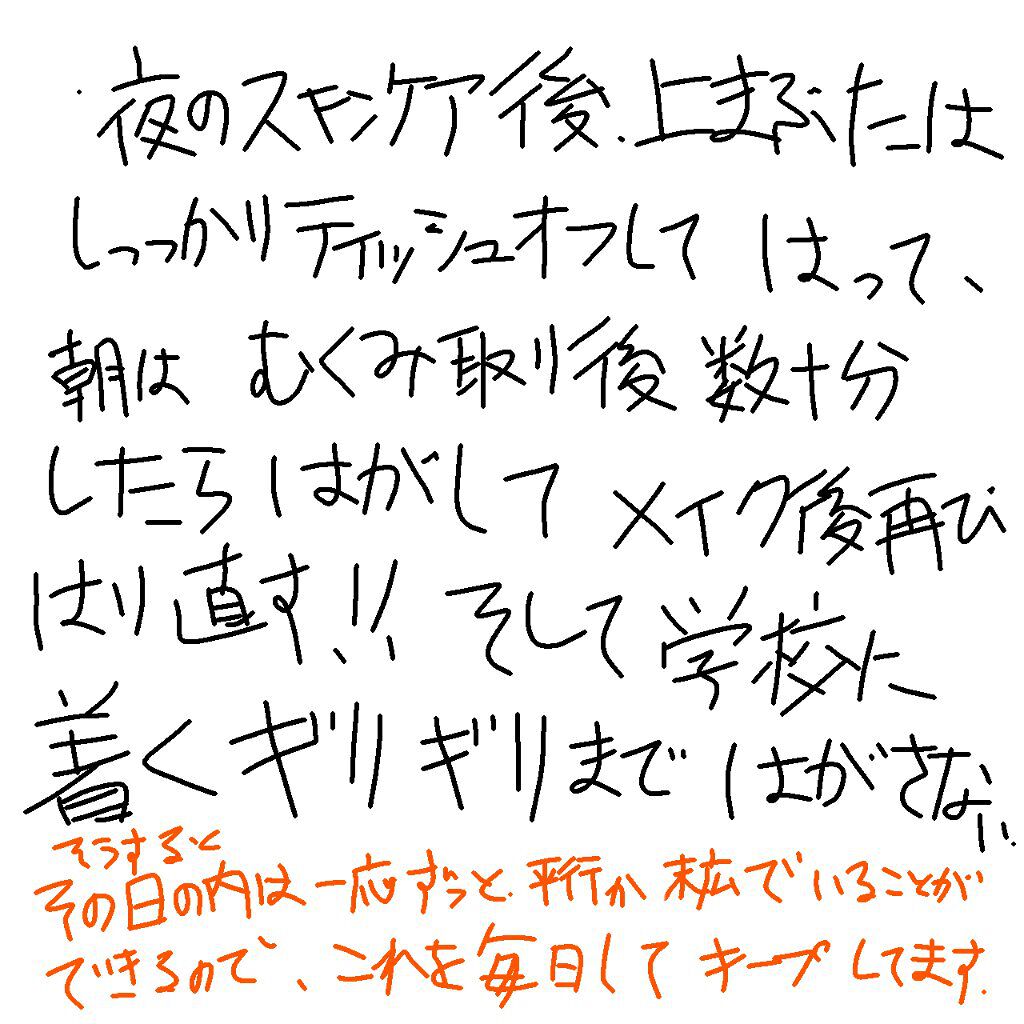 夜のスキンケア後、上まぶたは
しっかりティッシュオフして はって、
朝は むくみ取り後 数十分
したら はがして メイク後再び
はり直す!! そして 学校に
着く ギリギリまで はがさない.
そうすると
その日の内は 一応ずっと 平行か末広でいることが
できるので、これを毎日して キープしてます.